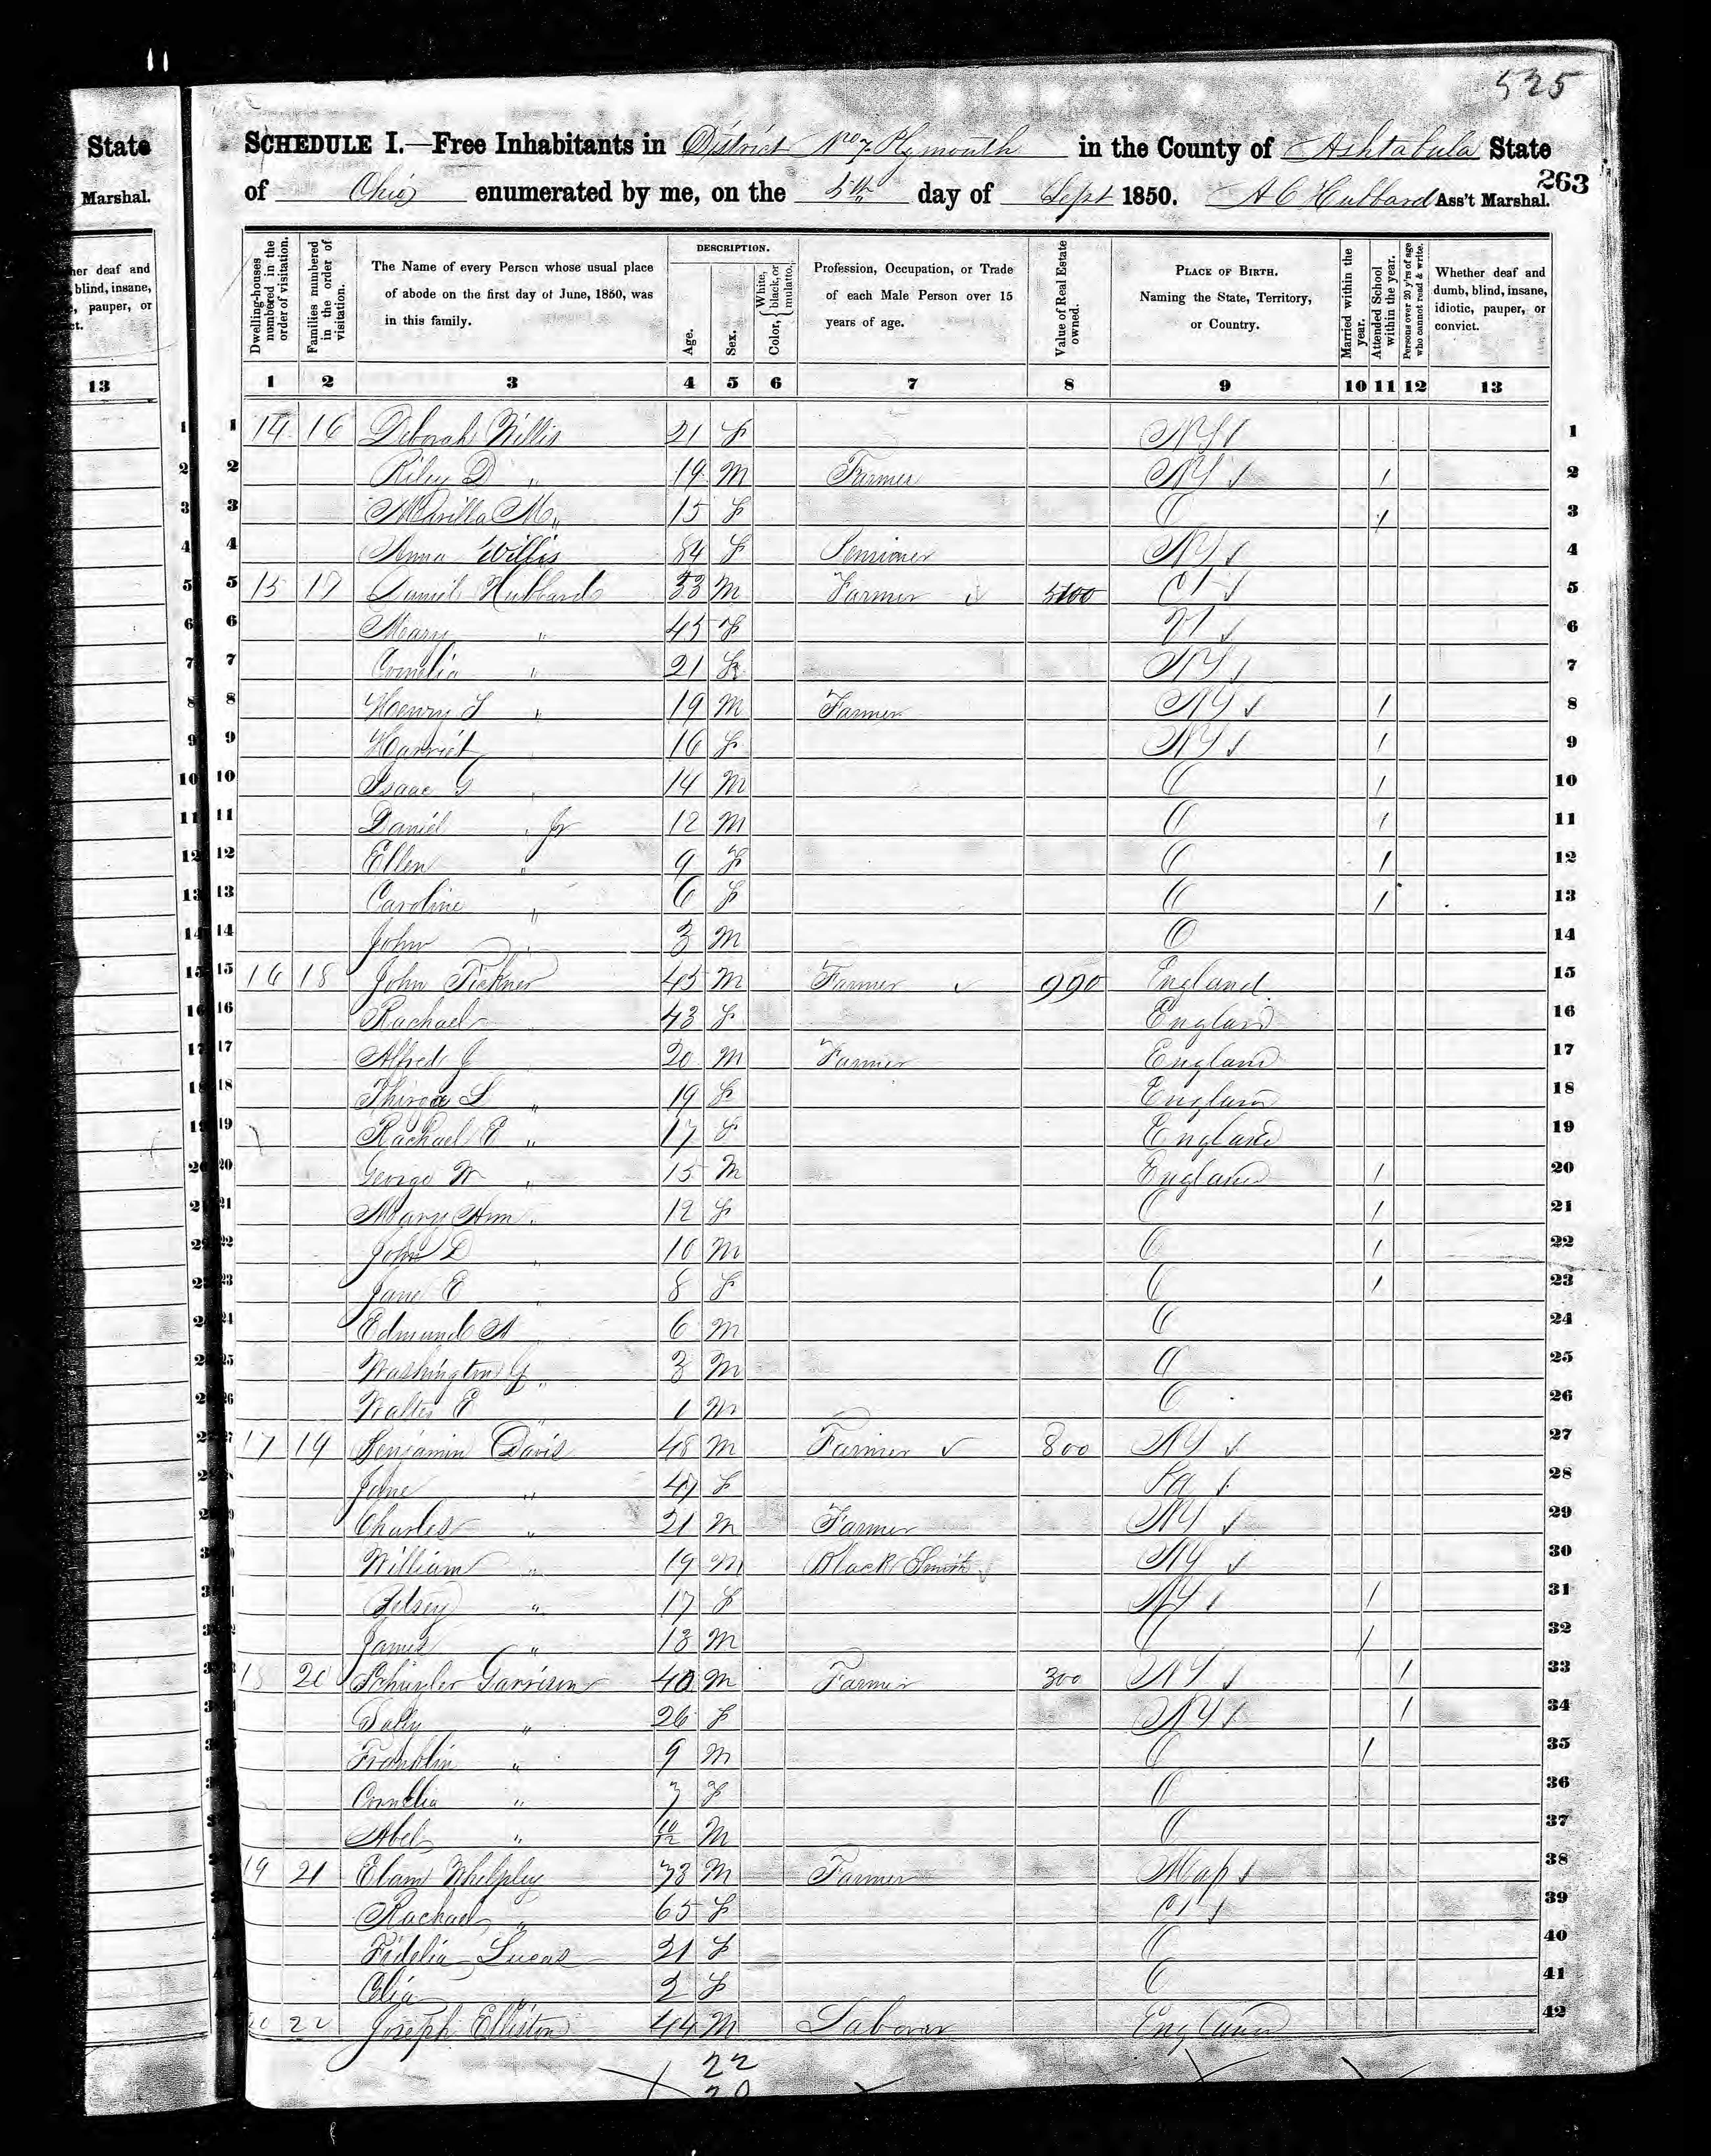 11
525
State
Marshal.
her deaf and
blind, insane,
, pauper, or
ct.
13
SCHEDULE I.—Free Inhabitants in District No 7 Plymouth in the County of Ashtabula State
of Ohio enumerated by me, on the 5th day of Sept 1850. A C Hubbard Ass't Marshal.
263
Dwelling-houses numbered in the order of visitation.
Families numbered in the order of visitation.
The Name of every Person whose usual place of abode on the first day of June, 1850, was in this family.
DESCRIPTION.
Age.
Sex.
Color, { White, black, or mulatto.
Profession, Occupation, or Trade of each Male Person over 15 years of age.
Value of Real Estate owned.
PLACE OF BIRTH. Naming the State, Territory, or Country.
Married within the year.
Attended School within the year.
Persons over 20 y'rs of age who cannot read & write.
Whether deaf and dumb, blind, insane, idiotic, pauper, or convict.
1 2 3 4 5 6 7 8 9 10 11 12 13
1 14 16 Deborah Willis 21 F NY 1
2 Riley D " 19 M Farmer NY / 2
3 M M " 15 F O / 3
4 Anna Willis 84 F Pensioner NY 4
5 15 17 Daniel Hubbard 53 M Farmer CT 5
6 Mary " 45 F VT 6
7 Cornelia " 21 F NY 7
8 Henry " 19 M Farmer NY / 8
9 Harriet " 16 F NY / 9
10 Isaac G " 14 M O / 10
11 Daniel " Jr 12 M O / 11
12 Ellen " 9 F O / 12
13 Caroline " 6 F O / 13
14 John " 3 M O 14
15 16 18 John Tickner 45 M Farmer 990 England 15
16 Rachael " 43 F England 16
17 Alfred J 20 M Farmer England 17
18 L " 19 F England 18
19 Rachael E " 17 F England 19
20 George W " 15 M England / 20
21 Mary Ann " 12 F O / 21
22 John D " 10 M O / 22
23 Jane E " 8 F O / 23
24 Edmund A 6 M O 24
25 Washington G " 3 M O 25
26 Walter E " 1 M O 26
17 19 Benjamin Davis 48 M Farmer 800 NY 27
Jane " 47 F Pa 28
Charles " 21 M Farmer NY 29
William " 19 M Black Smith NY 30
" 17 F NY / 31
James " 13 M O / 32
18 20 Schuyler Garrison 40 M Farmer 300 NY / 33
Sally " 26 F NY / 34
Franklin " 9 M O / 35
Cornelia " 7 F O 36
Abel " 10/12 M O 37
19 21 Elam Whelpley 73 M Farmer Mass 38
Rachael " 65 F CT 39
Fidelia Lucas 21 F O 40
Celia " 2 F O 41
20 22 Joseph Elliston 44 M Laborer England 42
22
20